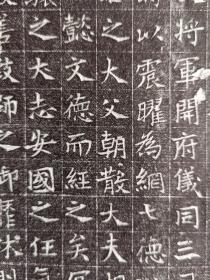 將軍開府儀同三
以震曜為綱七德
之大父朝散大夫
懿文德而經之矣
之大志安國之任
師之御